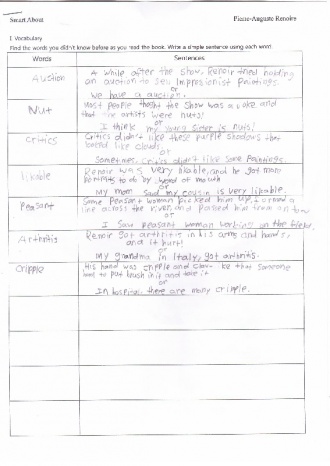 Smart About
Pierre-Auguste Renoire
I. Vocabulary
Find the words you didn't know before as you read the book. Write a simple sentence using each word.
Words
Sentences
Auction
A while after the show, Renoir tried holding
an auction to sell Impressionist Paintings.
or
We have a auction.
Nut
Most people thought the show was a joke and
that the artists were nuts!
or
I think my young sister is nuts!
Critics
Critics didn't like these purple shadows that
looked like clouds.
or
Sometimes, critics didn't like some Paintings.
likable
Renoir was very likable, and he got more
by word of mouth
or
My mom said my cousin is very likable.
Peasant
Some Peasant woman picked him up,
across the river, and passed him from
or
I saw peasant woman working on the field.
Arthritis
Renoir got arthritis in his arms and hands,
and it hurt!
or
My grandma in Italy, got arthritis.
Cripple
His hand was cripple and claw-like that someone
had to put brush in it and take it
or
In hospital, there are many cripple.